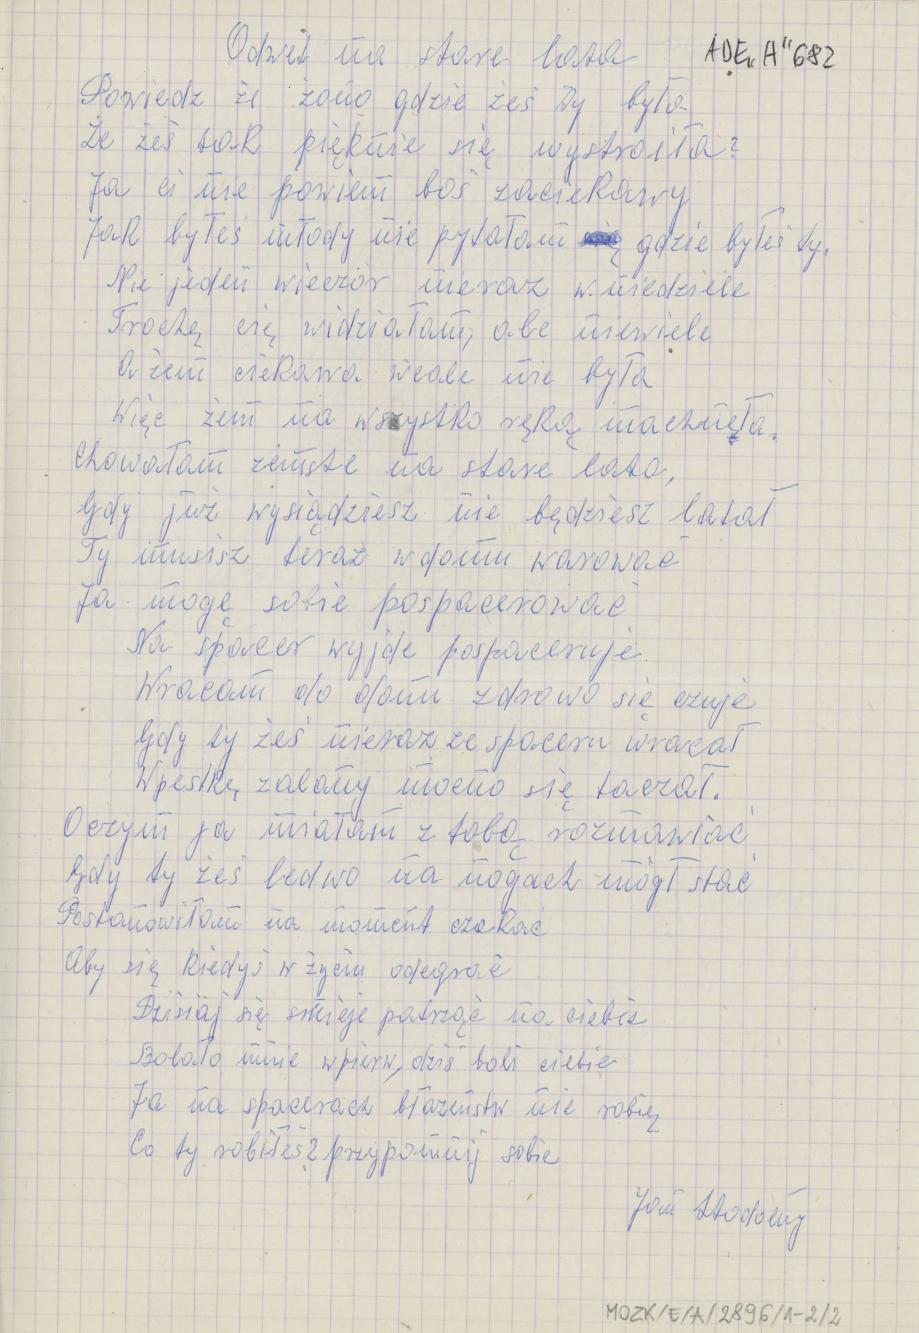 Odwet na stare lata
ADE„A"682
Powiedz że żono gdzie żeś ty była
Że żeś tak pięknie się wystroiła?
Ja ci nie powiem boś zaciekawy
Jak byłeś młody nie pytałam gdzie byłeś ty.
Nie jeden wieczór nieraz w niedziele
Trochę cię widziałam, ale niewiele
A żem ciekawa wcale nie była
Więc żem na wszystko ręką machnęła.
Chowałam zemste na stare lata,
Gdy już wysiądziesz nie będziesz latał
Ty musisz teraz wdomu warować
Ja mogę sobie pospacerować
Na spacer wyjde pospaceruje.
Wracam do domu zdrowo się czuje
Gdy ty żeś nieraz ze spaceru wracał
Wpestkę zalany mocno się taczał.
Oczym ja miałam z tobą rozmawiać
Gdy ty żeś ledwo na nogach mógł stać
Postanowiłam na moment czekać
Aby się kiedyś w życiu odegrać
Dzisiaj się śmieje patrząc na ciebie
Bolało mnie wpierw, dziś boli ciebie
Ja na spacerach błazeństw nie robię
Co ty robiłeś? przypomnij sobie
Jan
MOZK/E/A/2896/1-2/2